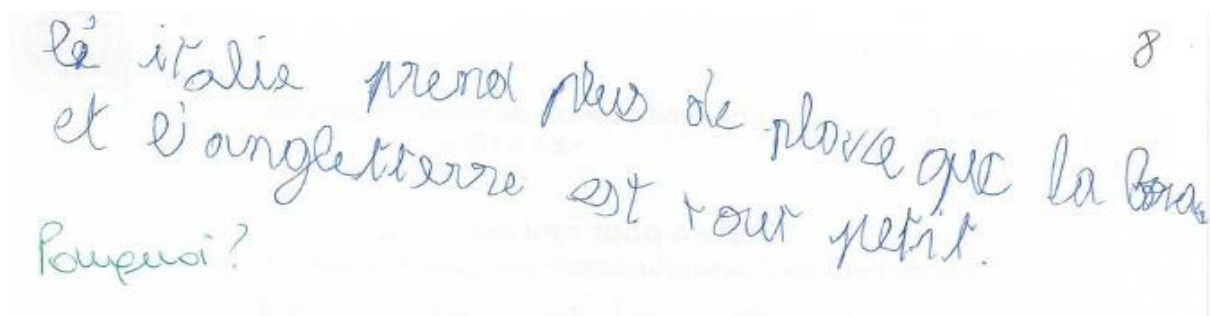 8
italie prend plus de place que la
et l'angletterre est tout petit.
Pourquoi ?